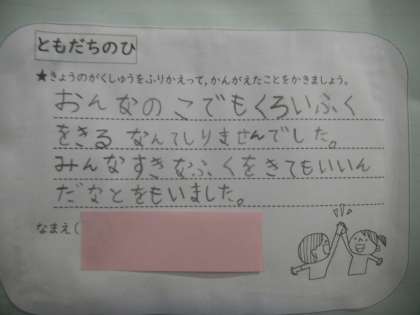 ともだちのひ
★きょうのがくしゅうをふりかえって、かんがえたことをかきましょう。
おんなのこでもくろいふく
をきるなんてしりませんでした。
みんなすきなふくをきてもいいん
だなとをもいました。
なまえ(